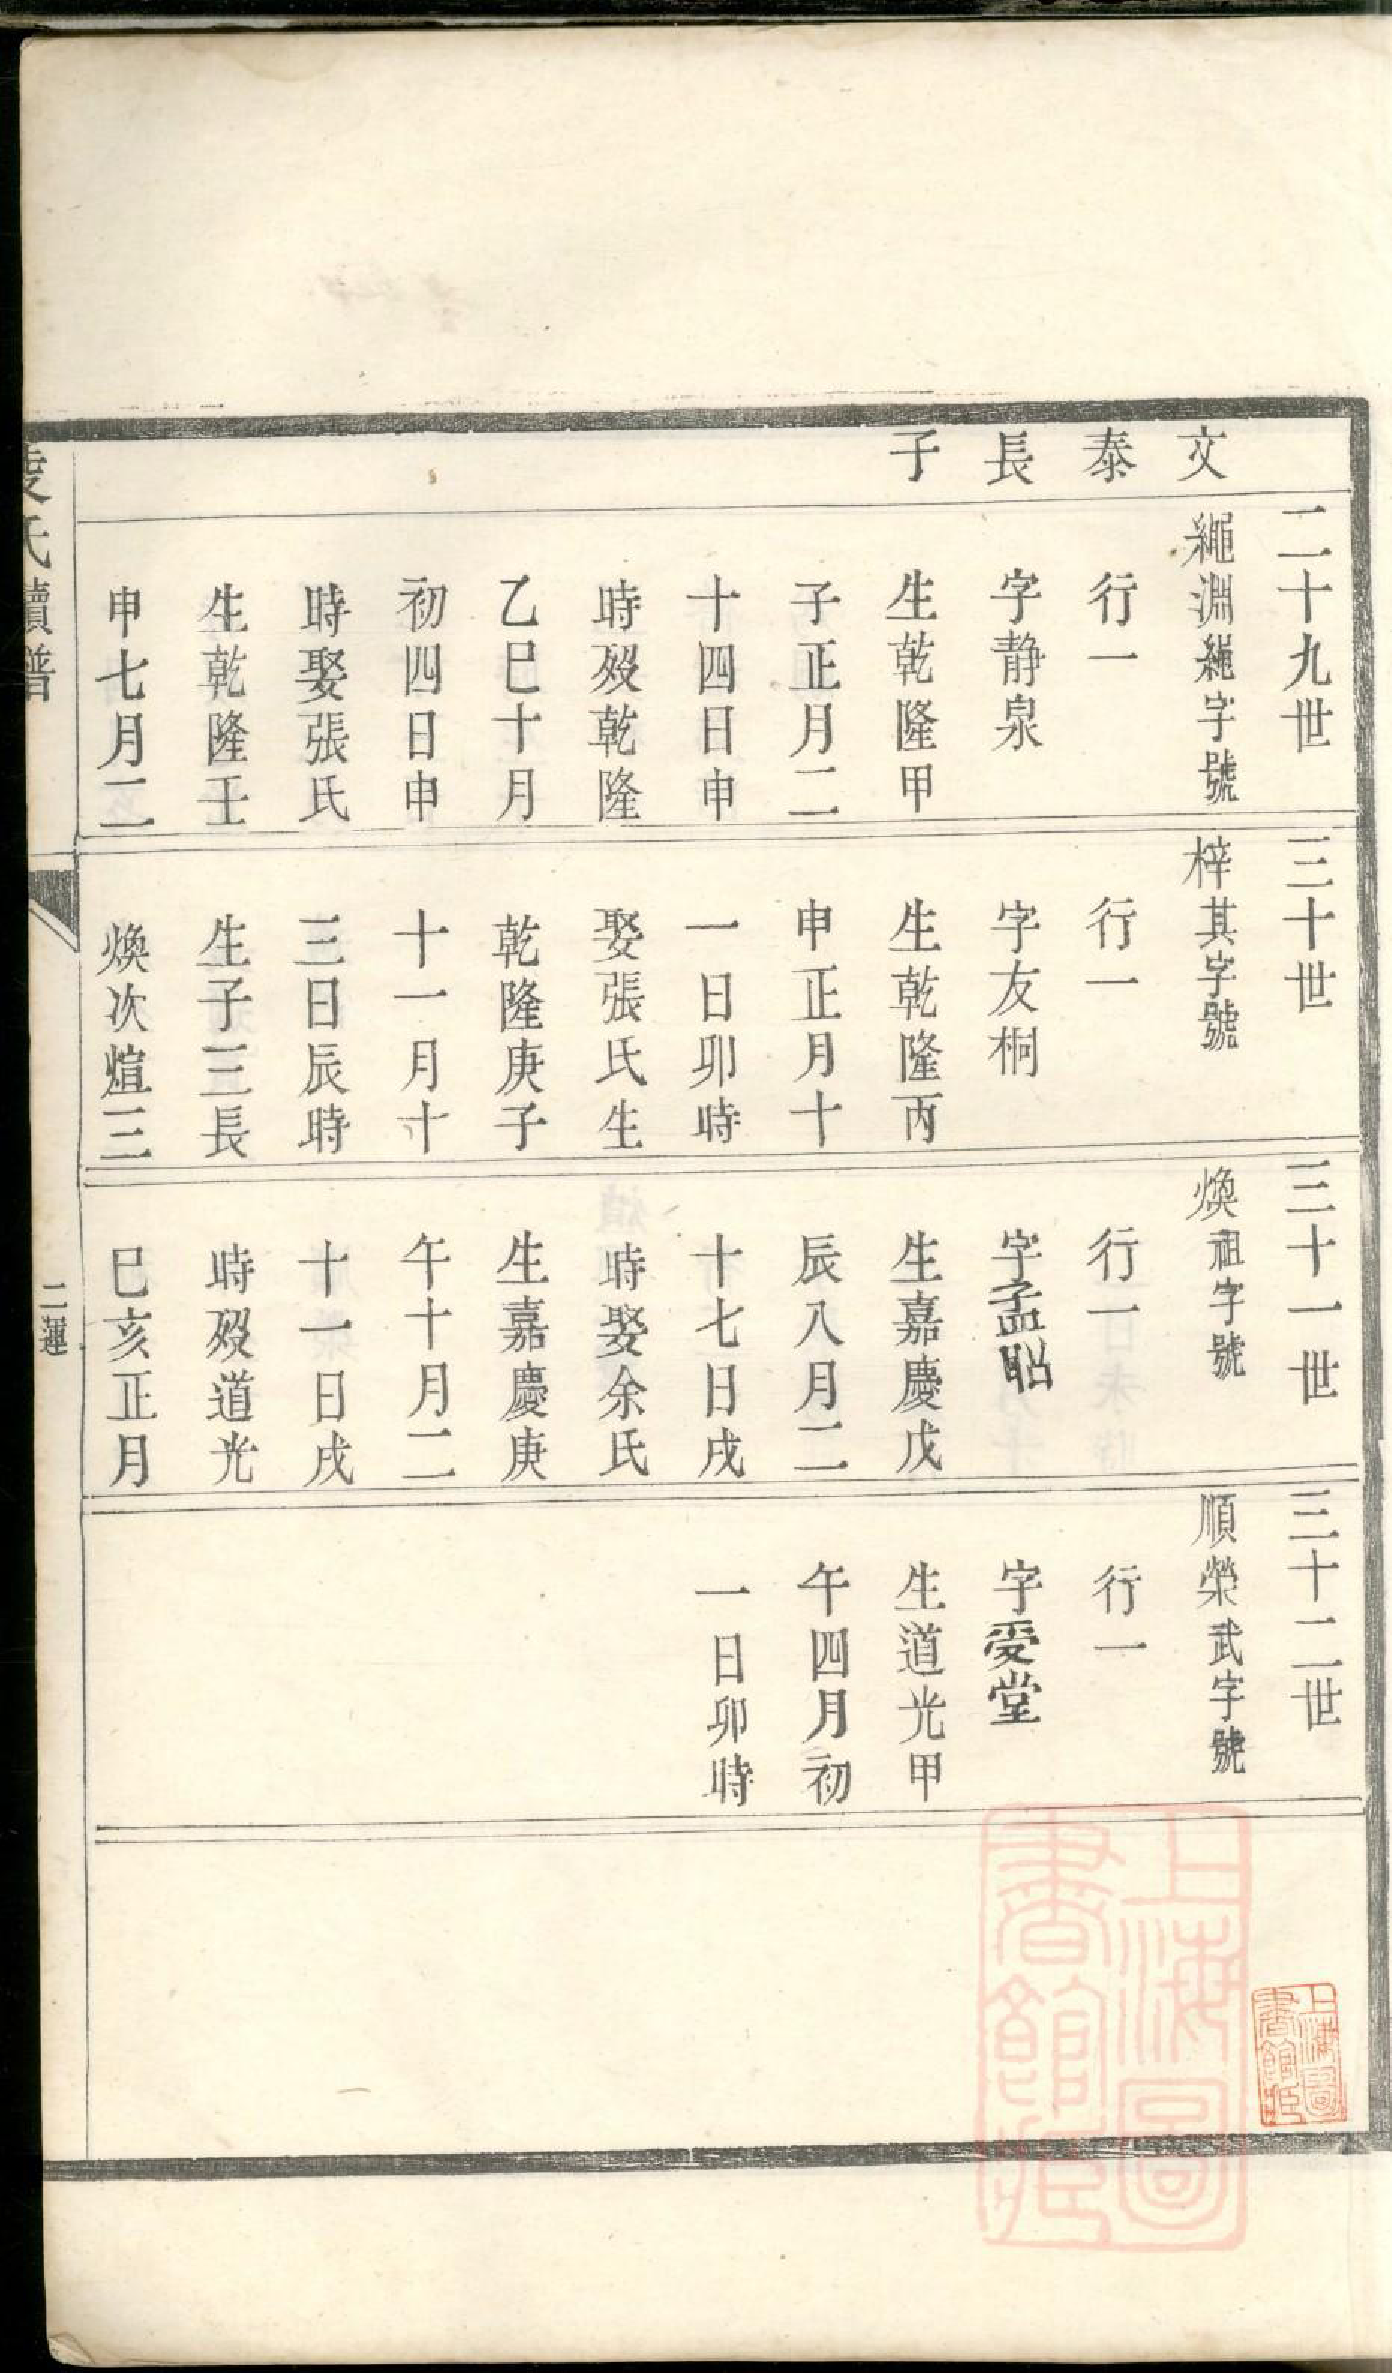 文
泰
長
子
二十九世
繩淵繩字號
行一
字静泉
生乾隆甲
子正月二
十四日申
時歿乾隆
乙巳十月
初四日申
時娶張氏
生乾隆壬
申七月二
三十世
梓其字號
行一
字友桐
生乾隆丙
申正月十
一日卯時
娶張氏生
乾隆庚子
十一月十
三日辰時
生子三長
煥次煊三
三十一世
煥祖字號
行一
字孟昭
生嘉慶戊
辰八月二
十七日戌
時娶余氏
生嘉慶庚
午十月二
十一日戌
時歿道光
己亥正月
三十二世
順榮武字號
行一
字受堂
生道光甲
午四月初
一日卯時
氏續譜
二運
上海圖書館藏
上海圖書館藏